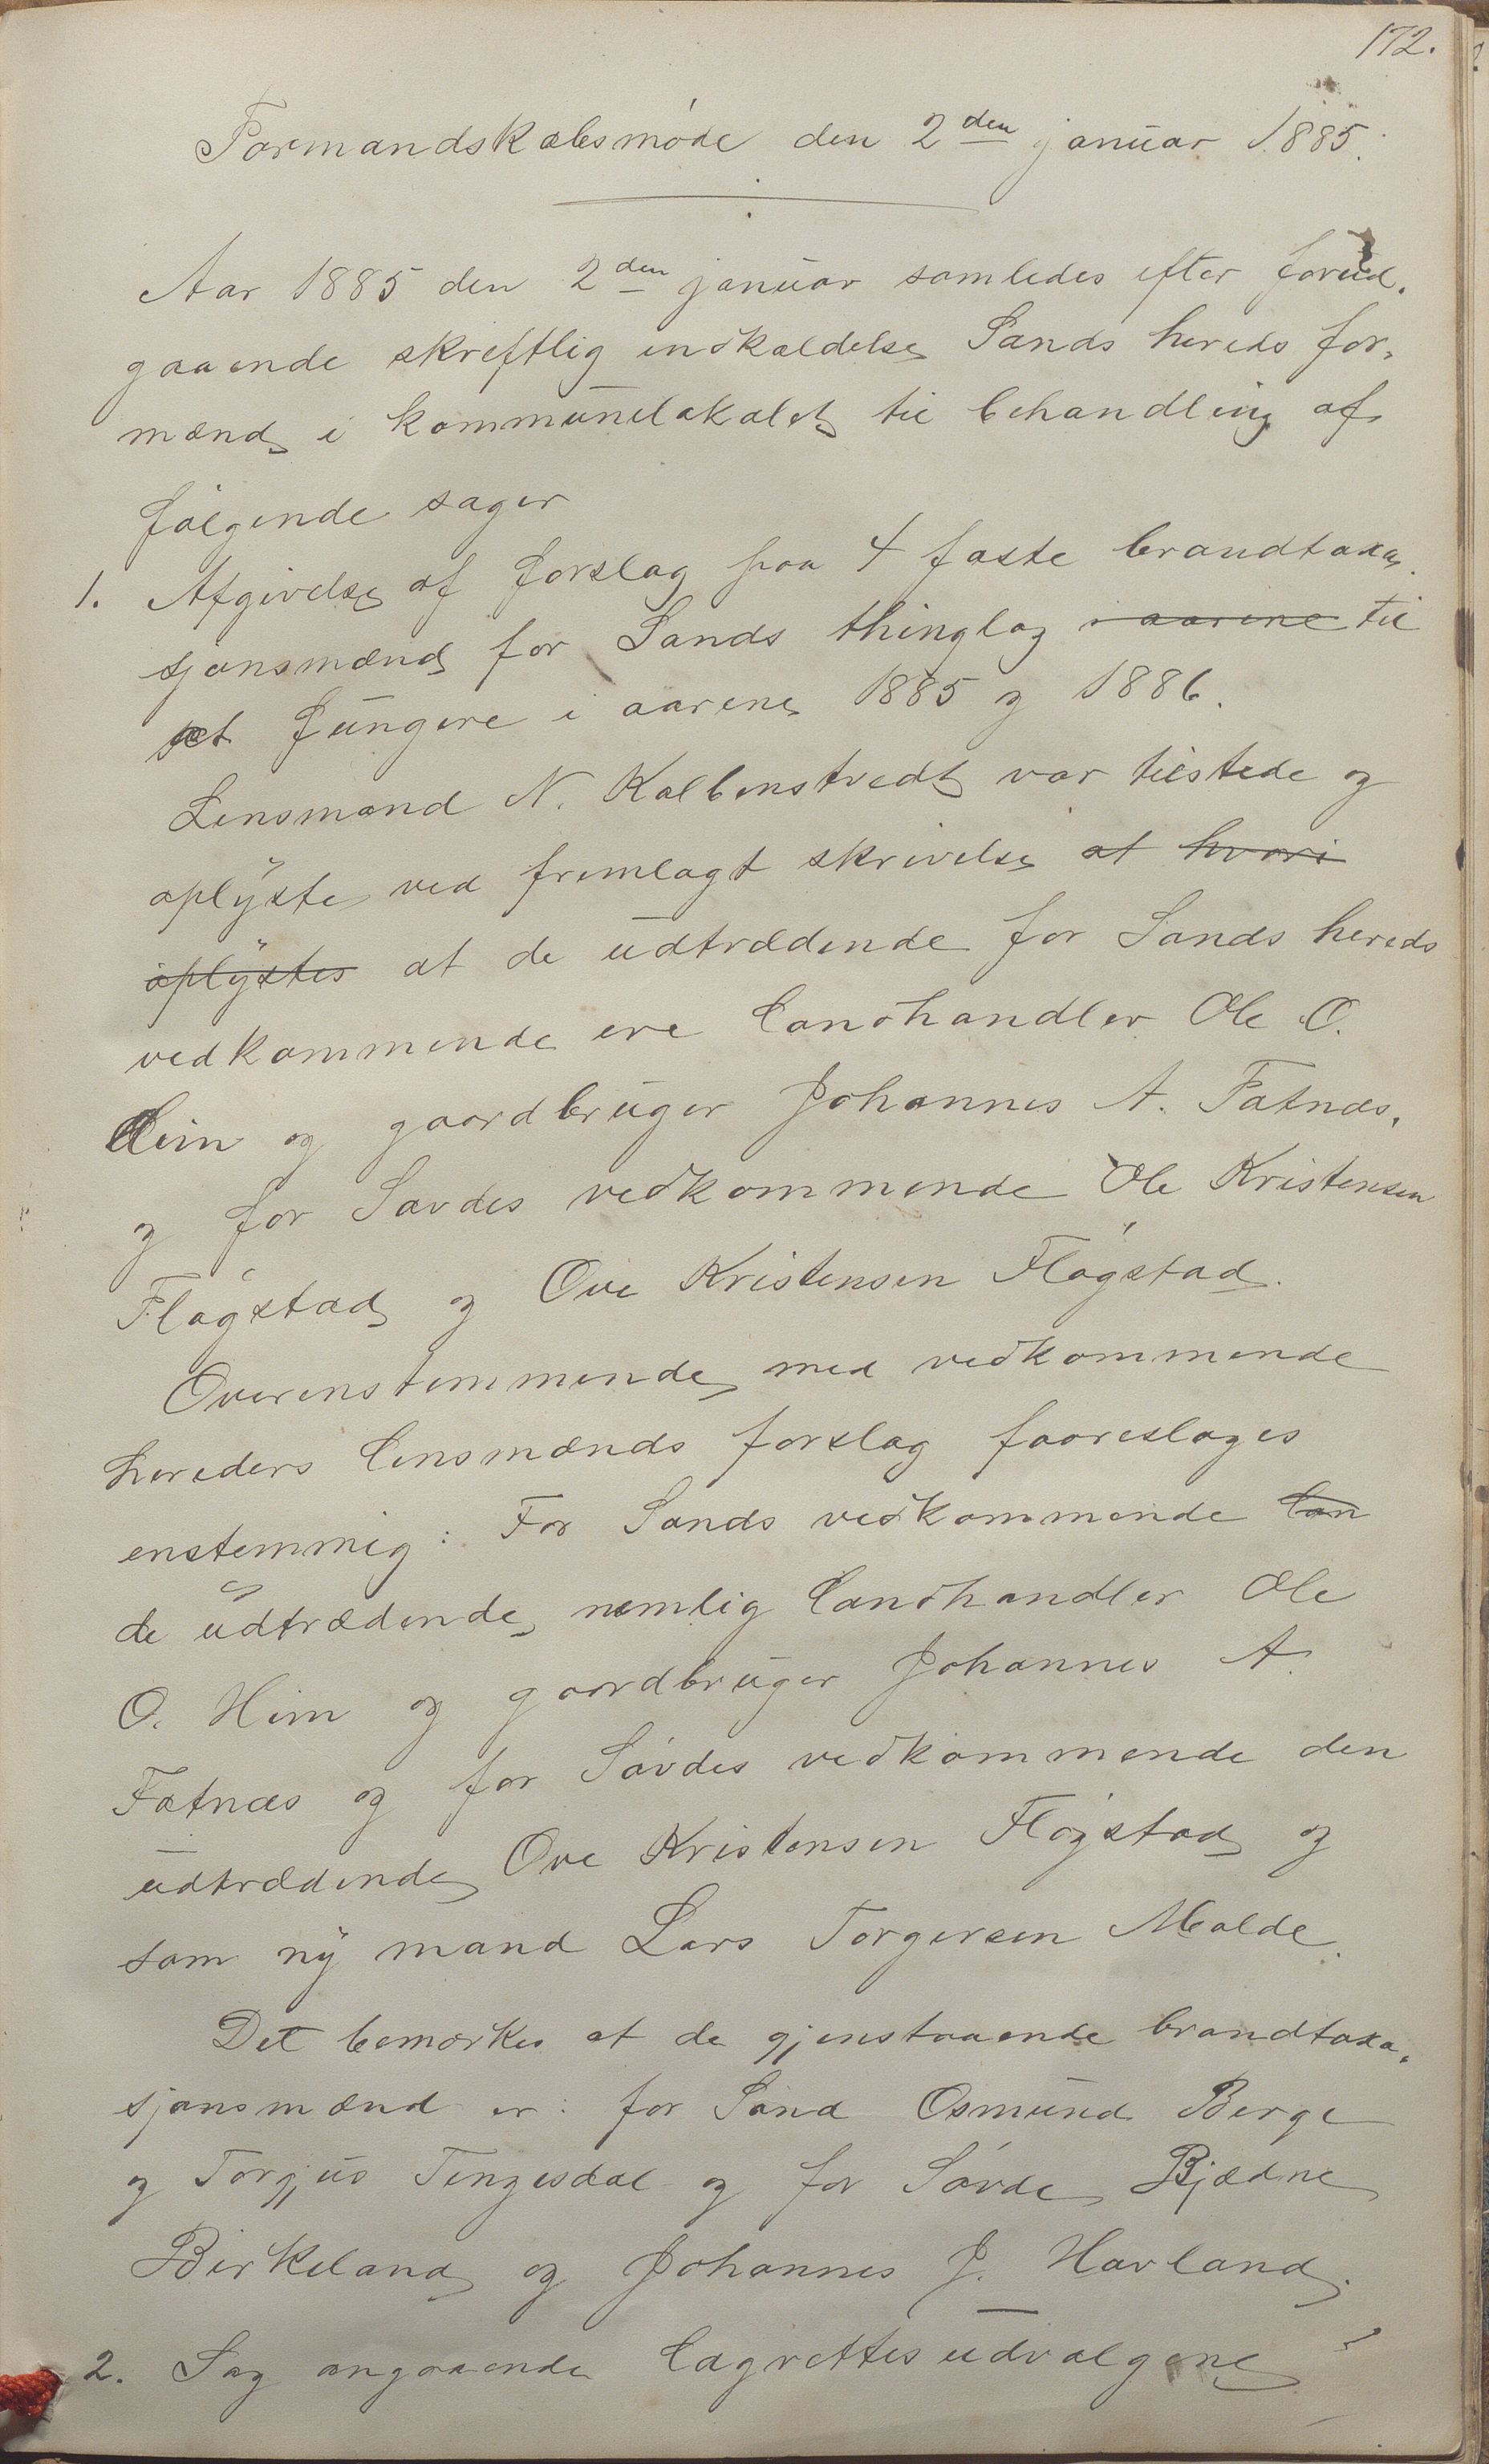 172.
Formandskabsmøde den 2den januar 1885.
Aar 1885 den 2den januar samledes efter forud-
gaaende skreftlig indkaldelse Sands hereds for-
mænd i kommunelokalet til behandling af
følgende sager
1. Afgivelse af forslag paa 4 faste brandtaxa-
sjonsmænd for Sands thinglag i aarene til
at fungere i aarene 1885 og 1886.
Lensmand N. Kolbenstvedt var tilstede og
oplyste ved fremlagt skrivelse at hvori
oplystes at de udtrædende for Sands hereds
vedkommende ere landhandler Ole O.
Hiim og gaardbruger Johannes A. Fatnæs,
og for Søvdes vedkommende Ole Kristensen
Fløgstad og Ove Kristensen Fløgstad.
Overenstemmende med vedkommende
hereders lensmænds forslag fooreslages
enstemmig: For Sands vedkommende lan
de udtrædende, nemlig landhandler Ole
O. Hiim og gaardbruger Johannes A.
Fatnæs og for Søvdes vedkommende den
udtrædende Ove Kristensen Fløgstad og
som ny mand Lars Torgersen Molde.
Det bemærkes at de gjenstaaende brandtaxa-
sjonsmænd er: for Sand Osmund Berge
og Torgjus Tengesdal og for Søvde Bjædne
Birkeland og Johannes J. Havland.
2. Sag angaaende lagrettesudvalgene